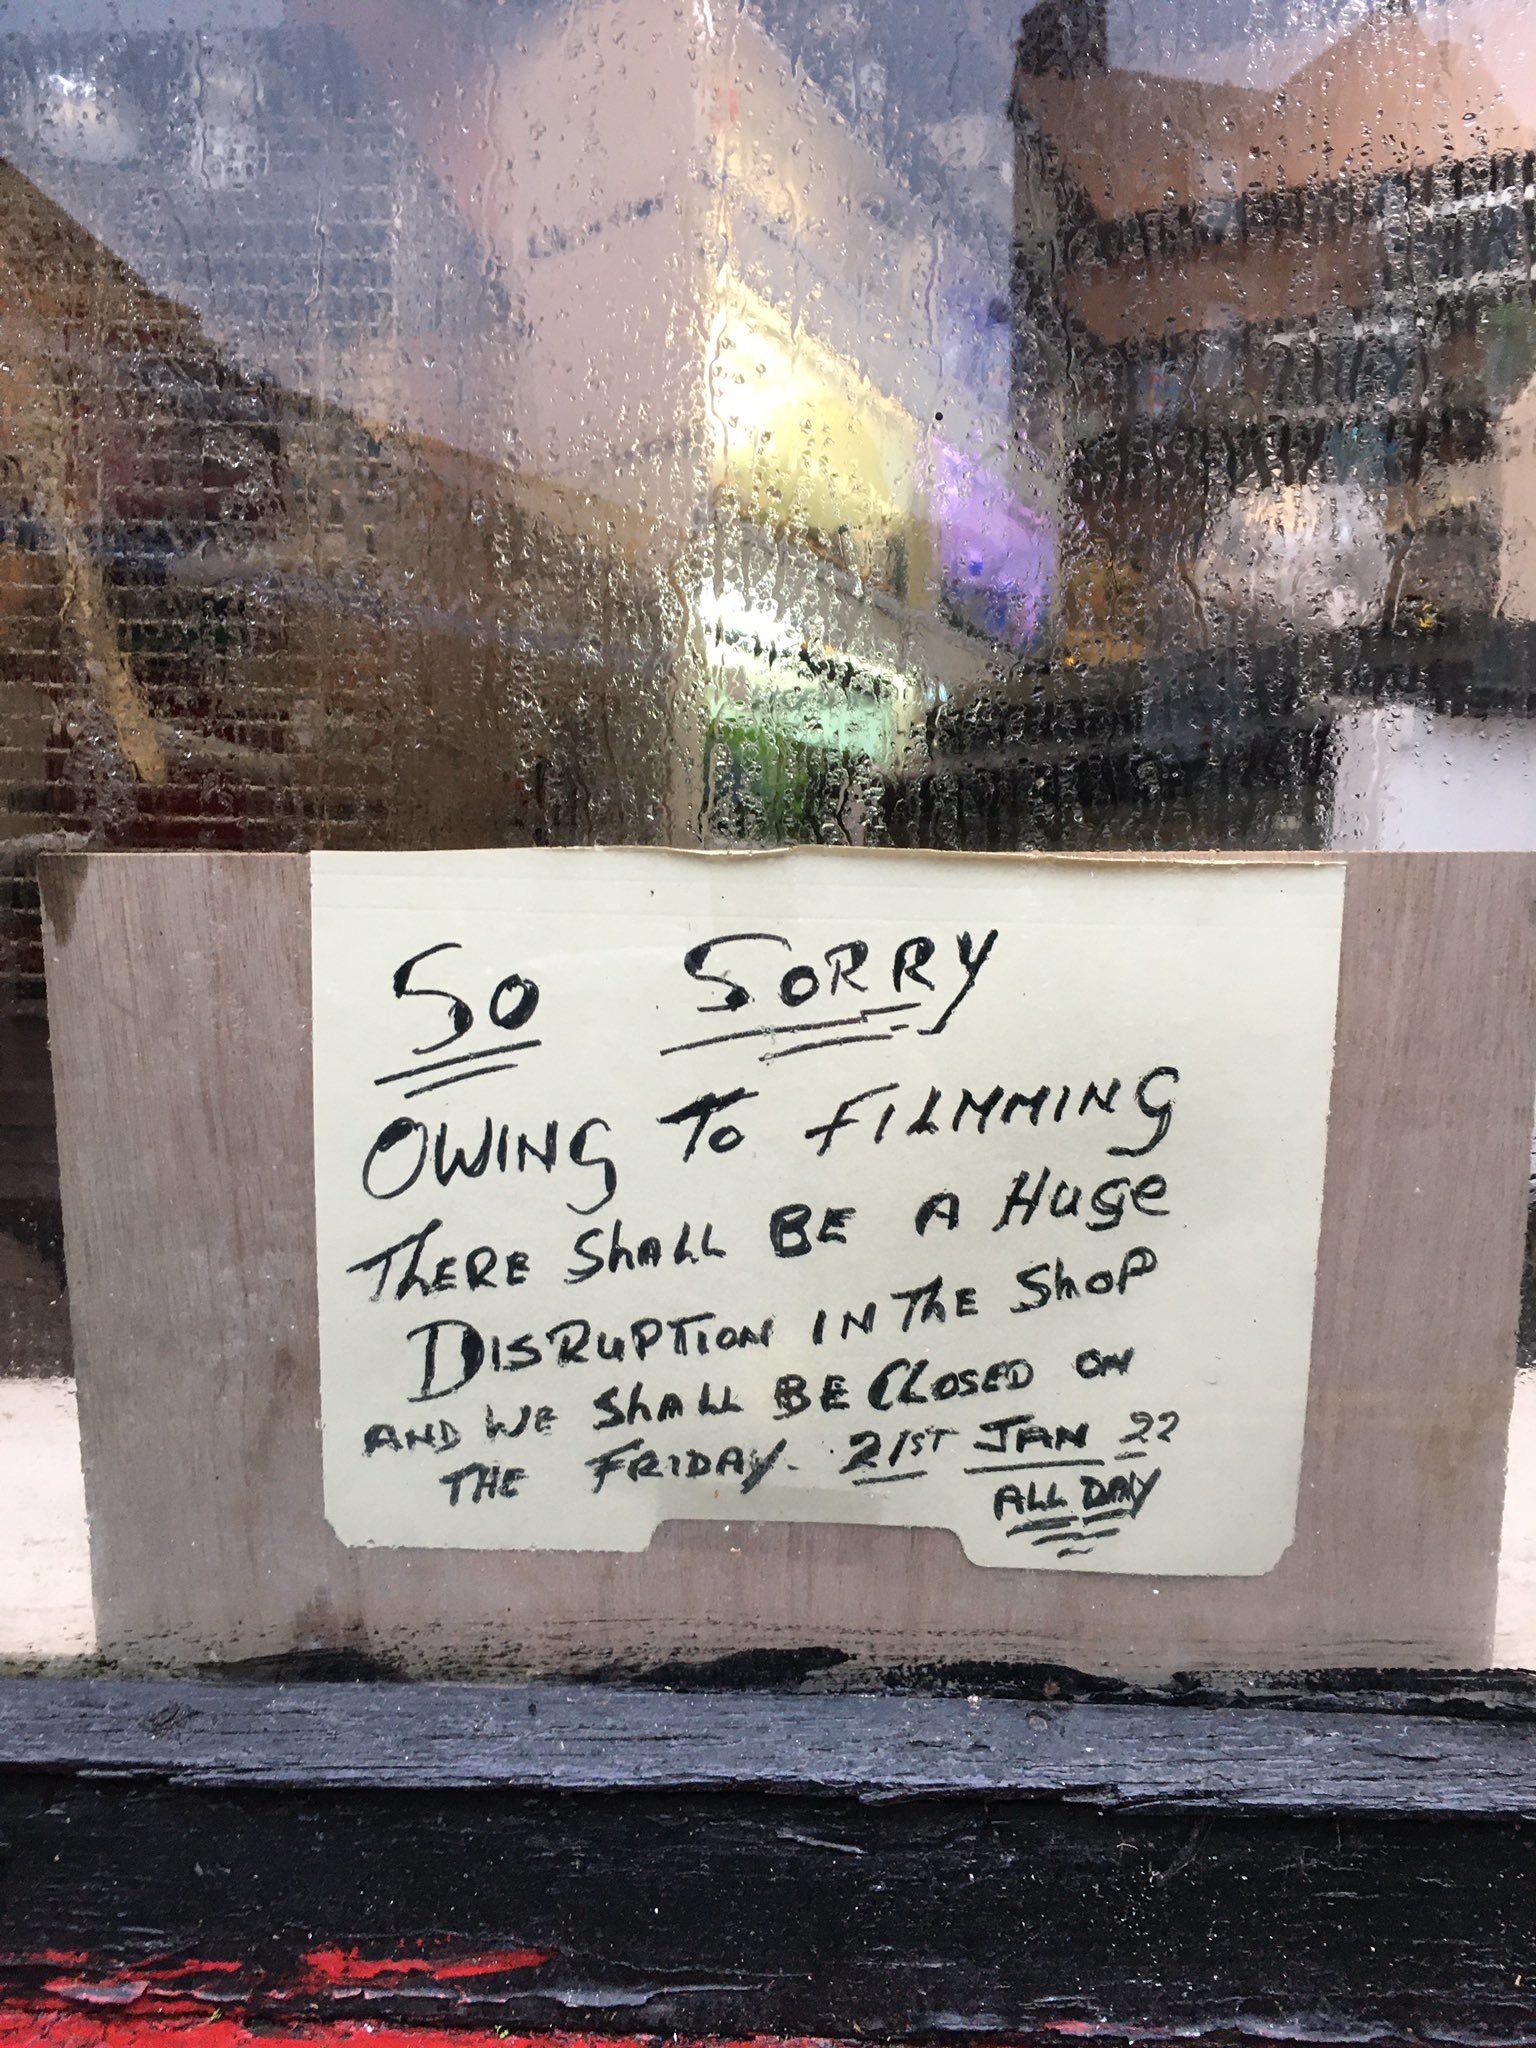 SO SORRY
OWING TO FILMMING
THERE SHALL BE A HUGE
DISRUPTION IN THE SHOP
AND WE SHALL BE CLOSED ON
THE FRIDAY. 21ST JAN 22
ALL DAY